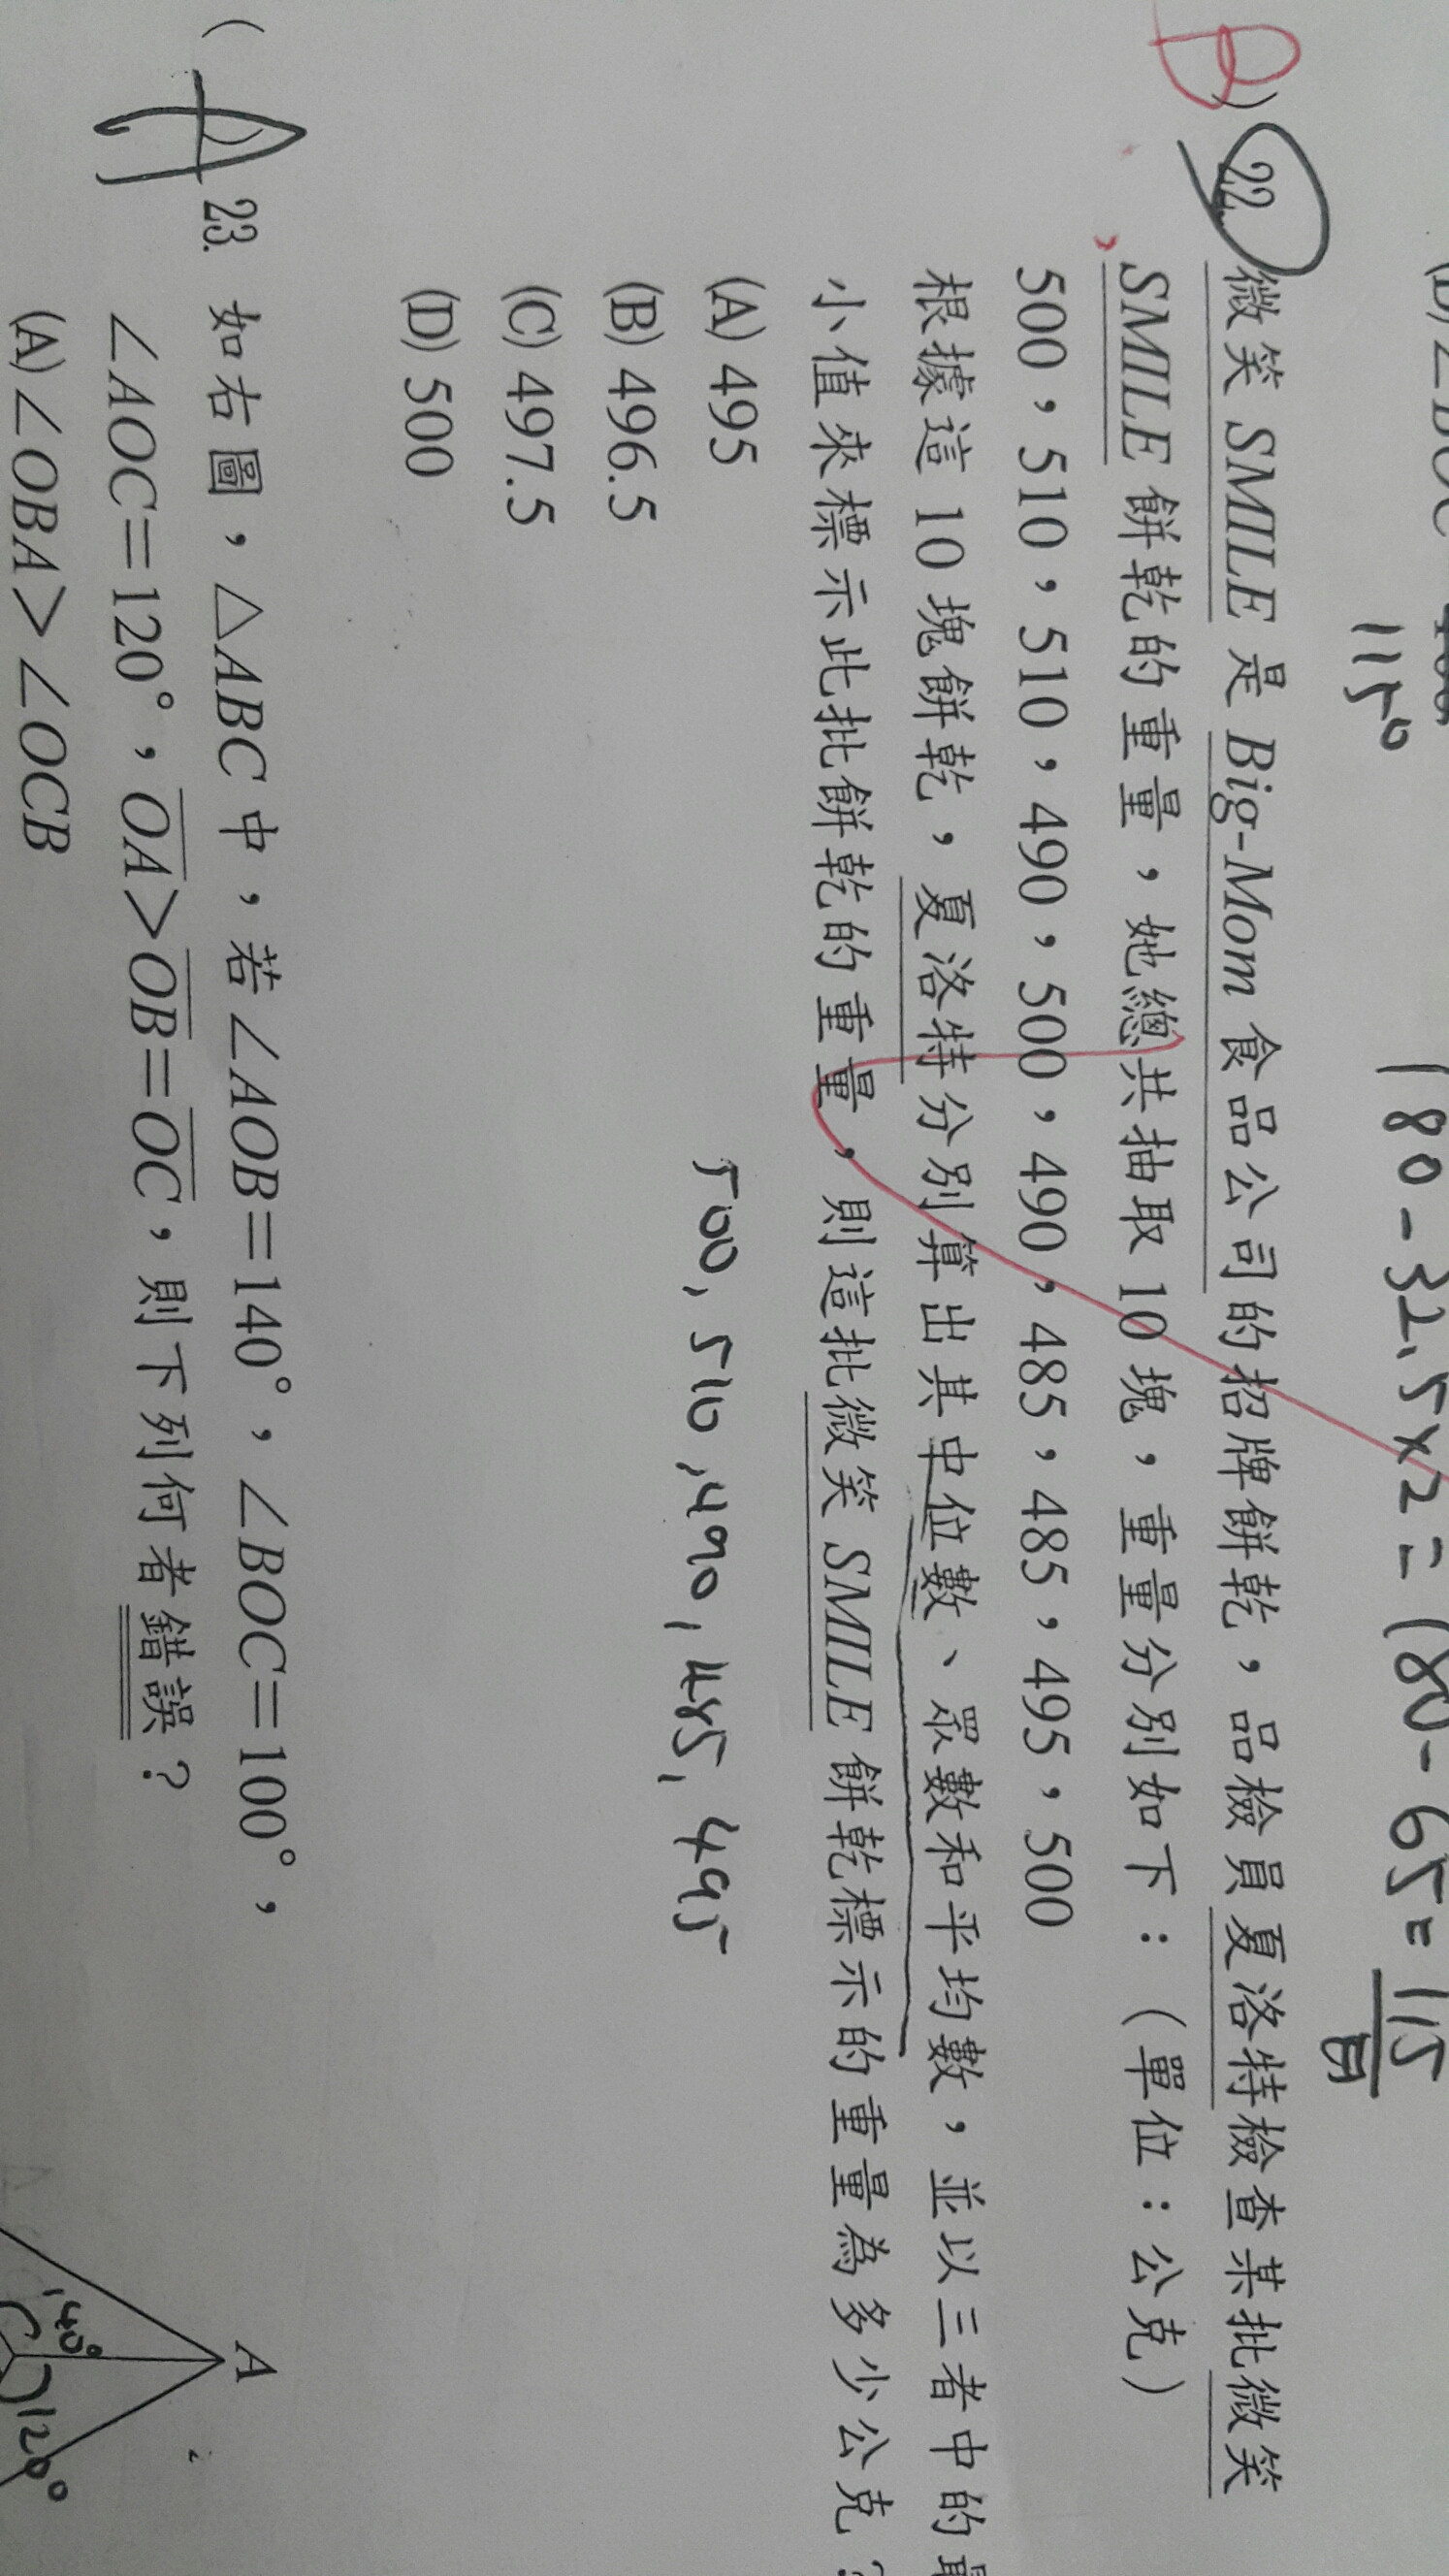 115°
180-32.5×2=180-65=115
B
22. 微笑 SMILE 是 Big-Mom 食品公司的招牌餅乾，品檢員夏洛特檢查某批微笑
SMILE 餅乾的重量，她總共抽取 10 塊，重量分別如下：（單位：公克）
500，510，510，490，500，490，485，485，495，500
根據這 10 塊餅乾，夏洛特分別算出其中位數、眾數和平均數，並以三者中的
小值來標示此批餅乾的重量，則這批微笑 SMILE 餅乾標示的重量為多少公克？
(A) 495
500, 510, 490, 485, 495
(B) 496.5
(C) 497.5
(D) 500
( A ) 23. 如右圖，△ABC 中，若∠AOB=140°，∠BOC=100°，
∠AOC=120°，OA>OB=OC，則下列何者錯誤？
(A) ∠OBA>∠OCB
A
140°
120°